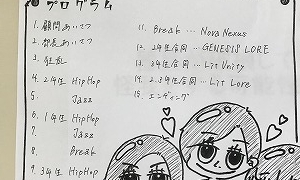 プログラム
1. 顧問あいさつ
2. 部長あいさつ
3. 狂乱
4. 2年生 HipHop
5. Jazz
6. 1年生 HipHop
7. Jazz
8. Break
9. 3年生 HipHop
11. Break … Nova Nexus
12. 2年合同 … GENESIS LORE
13. 3年合同 … Lit Unity
14. 2.3年合同 … Lit Lore
15. エンディング